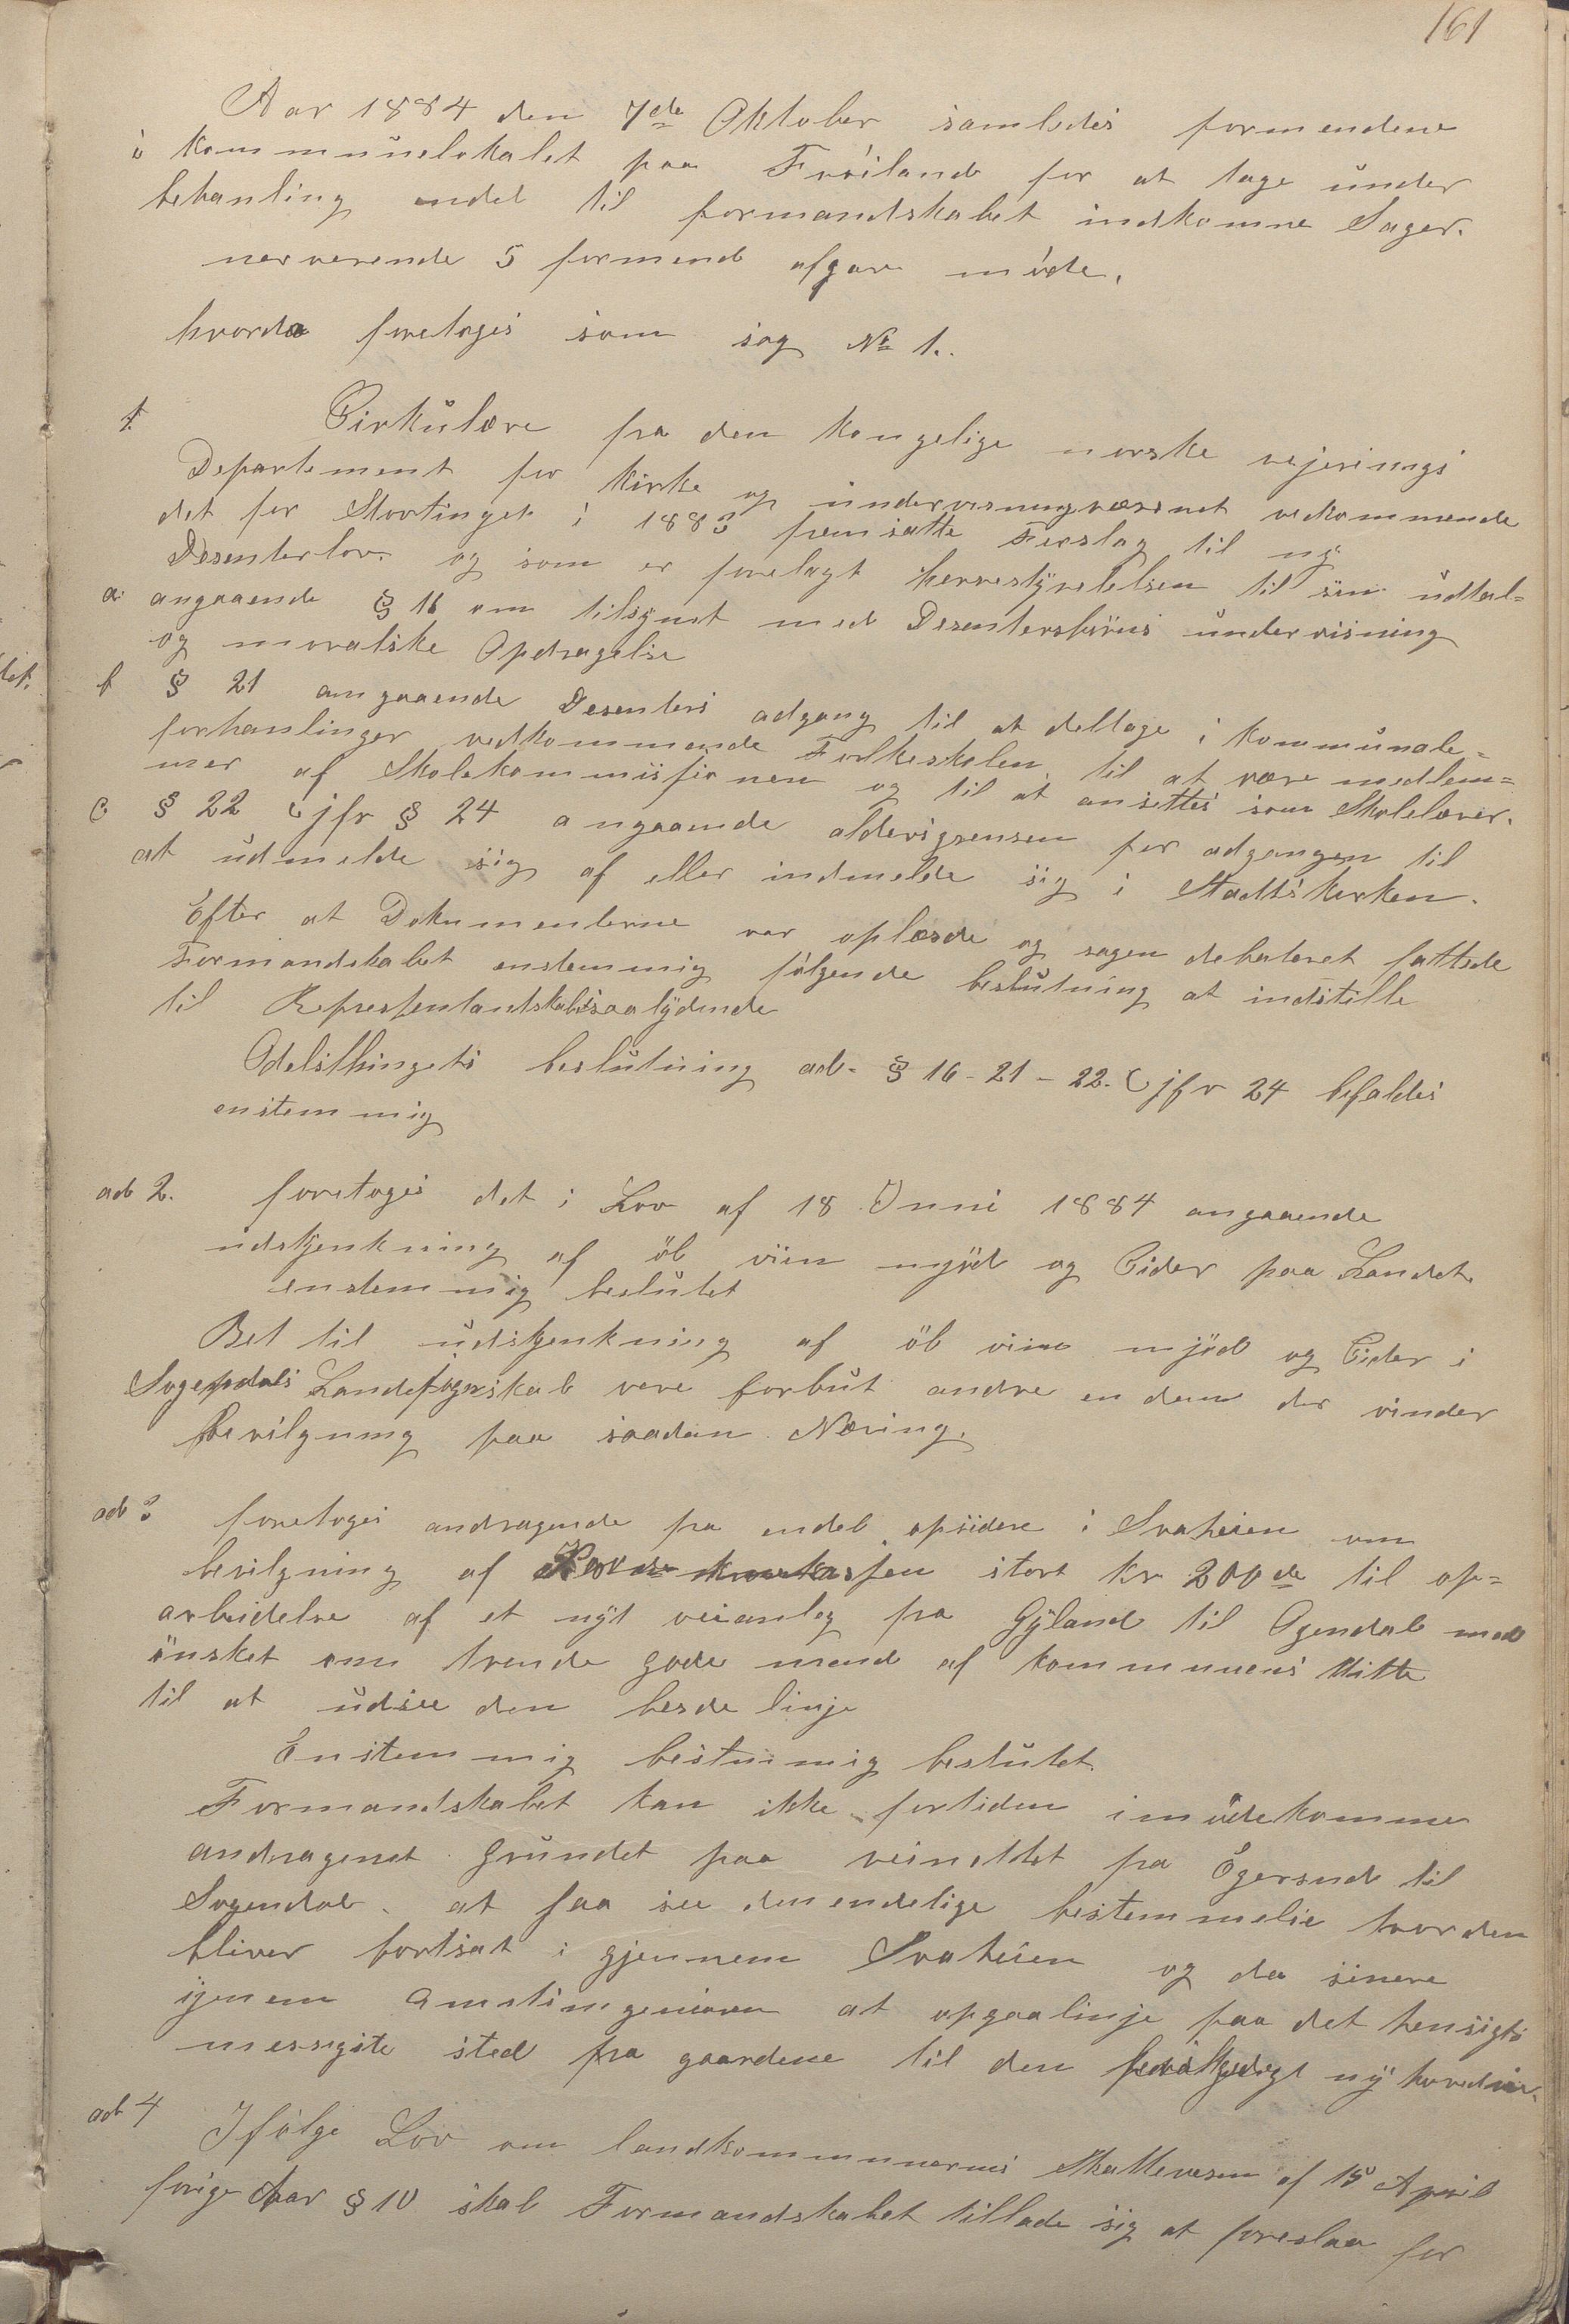 161
Aar 1884 den 7de Oktober samledes formendene
i kommunelokalet paa Frøiland for at tage under
behanling endel til formandskabet indkomne Sager.
nerverende 5 formend afgav møde.
hvorda foretoges som sag No 1.
1. Cirkulære fra den kongelige norske rejerings
Departement for kirke og undervisningvæsenet vedkommende
det for Stortinget i 1883 fremsatte Forslag til ny
Desenterlov og som er forelagt herrestyrelelsen til sin udtal=
a. angaaende § 16 om tilsynet med Desentersbørns undervisning
og moralske Opdragelse
b § 21 angaaende Desenters adgang til at deltage i kommunale=
forhanlinger vedkommende Folkeskolen til at være medlem=
mer af Skolekommissionen og til at ansettes som Skolelærer.
C § 22 (jfr § 24 angaaende aldersgrensen for adgangen til
at udmelde sig af eller indmelde sig i Stadtskirken.
Efter at Dokumenterne var oplæsde og sagen debateret fattede
Formandskabet enstemmig følgende beslutning at indstille
til Represfentantskabet saalydende
Odelsthingets beslutning ad. § 16 - 21 - 22. (jfr 24 befaldes
enstemmig
ad 2. foretoges det i Lov af 18 Juni 1884 angaaende
udskjenkning af øl viin mjød og Cider paa Landet.
enstemmig beslutet
Ret til udskjenkning af øl viin mjød og Cider i
Sogendals Landsogneskab være forbut andre en dem der vinder
Bevilgning paa saadan Næring.
ad 3 foretoges andragende fra endel opsidere i Svaheien om
bevilgning af stort kr 200de til op=
arbeidelse af et nyt veianleg fra Gyland til Ogendal med
ønsket om trende gode mend af kommunens Mitte
til at udsee den besde linje
Enstemmig bestemmig beslutet.
Formandskabet kan ikke fortiden imødekomme
andragenet Grundet paa veinettet fra Egersund til
Sogendal. at faa see den endelige bestemmelse hvor den
bliver fortsat i gjennem Svaheien og da sinere
igjenem Amtsingeniøren at opgaa linje paa det hensigts
messigste sted fra gaardene til den ny hovedvei.
ad 4 Ifølge Lov om landkommunernes Skattevesen af 15 April
forige Aar § 10 skal Formandskabet tillade sig at foreslaa for